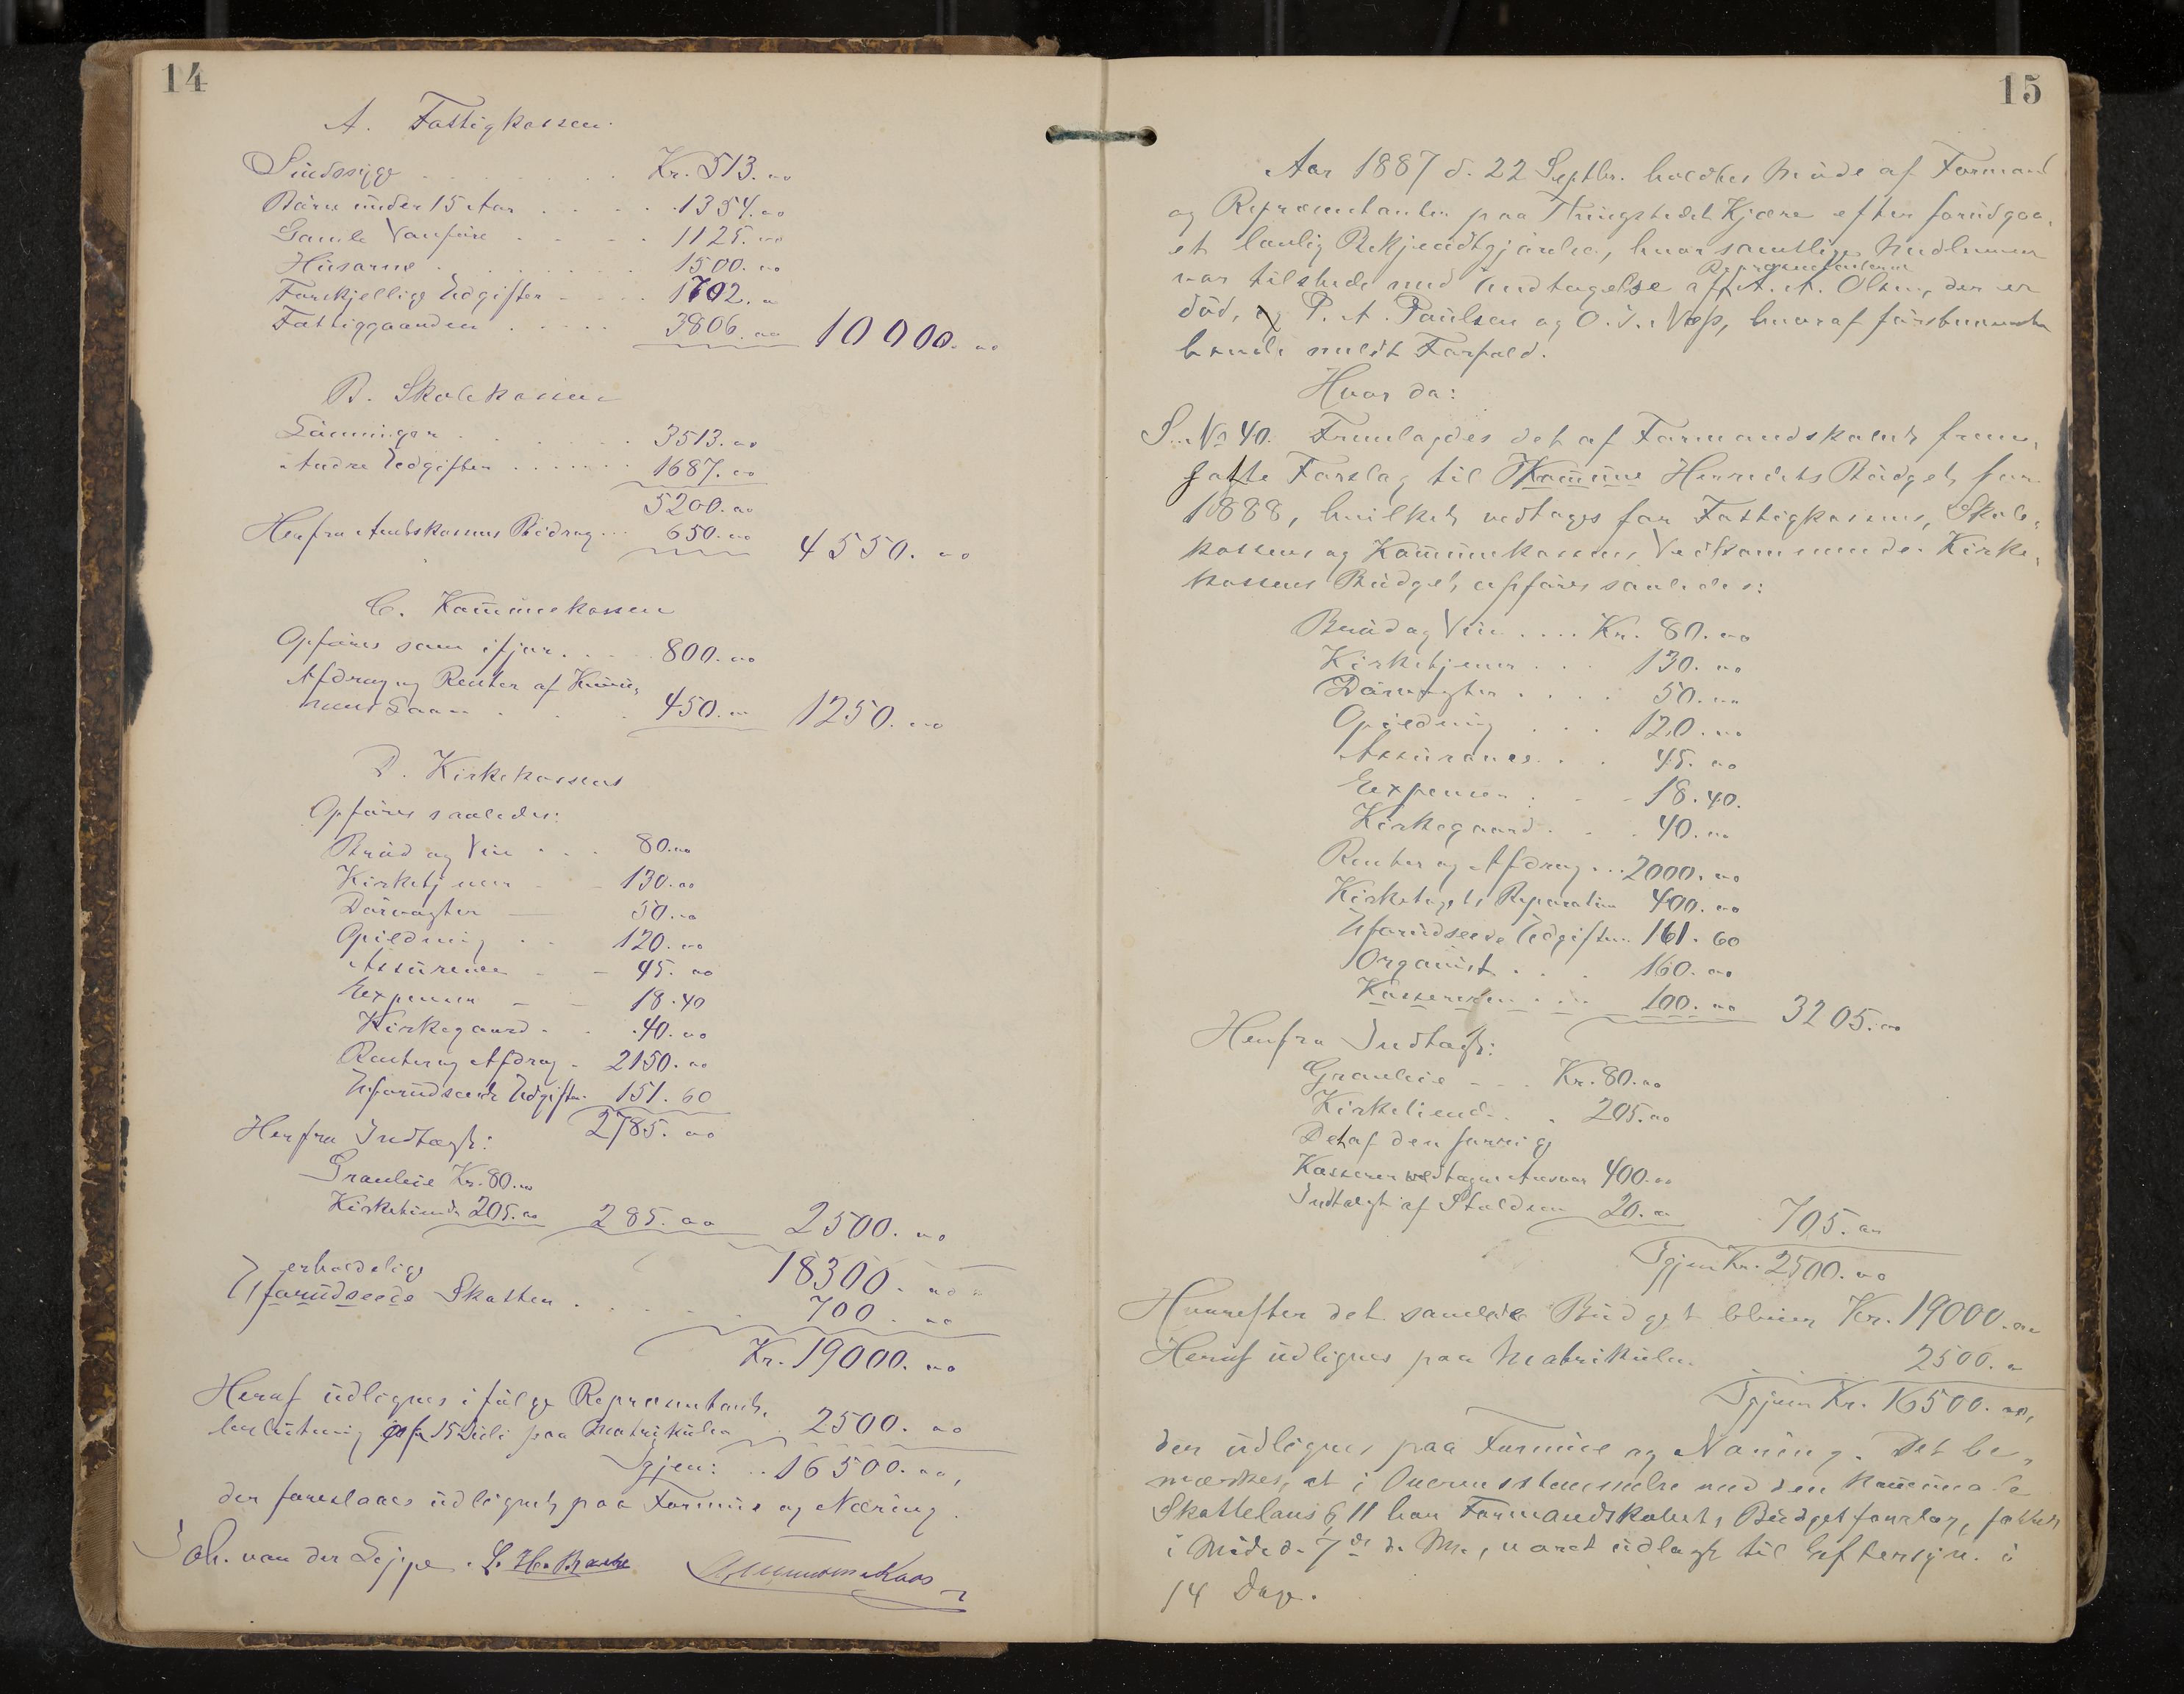 14
A. Fattigkassen.
Sindssyge . . . . . . . Kr. 513. 00
Börn under 15 Aar . . . . . 1354. 00
Gamle Vanföre . . . . 1125. 00
Husarme . . . . . . . 1500. 00
Forskjellige Udgifter - . . . 1702. 00
Fattiggaarden . . . . . 3806. 00 10000. 00
B. Skolekassen
Lönninger . . . . . . . 3513. 00
Andre Udgifter . . . . . . . 1687. 00
5200. 00
Herfra Amtskassens Bidrag . . . 650. 00 4550. 00
C. Kommunekassen
Opföres som ifjor. . . . 800. 00
Afdrag og Renter af
Laan . . . . 450. 00 1250. 00
D. Kirkekassens
Opföres saaledes:
Bröd og Vin . . . 80. 00
Kirketjener - - 130. 00
Dörvogter — 50. 00
Opildning . . 120. 00
Assurance - - 45. 00
Expenser - - 18. 40
Kirkegaard - . 40. 00
Renter og Afdrag - 2150. 00
Uforudseede Udgifter. 151. 60
Herfra Indtægt: 2785. 00
Gravleie Kr. 80. 00
Kirketiende 205. 00 285. 00 2500. 00
18300. 00
erholdelige
Uforudseede Skatter . . . . . . 700. 00
Kr. 19000. 00
Heraf udlignes ifölge Repræsentant,
beslutning af 15 Juli paa Matrikulen 2500. 00
Igjen: . . 16500. 00,
der foreslaaes udlignet paa Formue og Næring.
Joh. van der Lippe. L. H. Kaos
15
Aar 1887 d. 22 Septbr. holdtes Möde af Formand
og Repræsentanter paa Thingstedet Kjærre efter forudgaa,
et lovlig Bekjendtgjörelse, hvor samtlige Medlemmer
Repræsentanterne
var tilstede med Undtagelse af A. A. Olsen, der er
död, og P. A. Paulsen og O. J. Næss, hvoraf förstnævnte
havde meldt Forfald.
Hvor da:
S. No 40. Fremlagdes det af Formandskabet frem,
satte Forslag til Kommune Herredets Budget for
1888, hvilket vedtages for Fattigkassens, Skole,
kassens og Kommunekassens Vedkommende. Kirke,
kassens Budget opföres saaledes:
Bröd og Vin . . . . Kr. 80. 00
Kirketjener . . . 130. 00
Dörvogter . . . . 50. 00
Opildning . . . 120. 00
Assurance . . . 45. 00
Expenser : - - 18. 40.
Kirkegaard . . . 40. 00
Renter og Afdrag . . . 2000. 00
Kirketagets Reparation 400. 00
Uforudseede Udgifter. 161. 60
Organist . . . 160. 00
Kassereren . . . . 100. 00 3205. 00
Herfra Indtægt:
Gravleie - - . Kr. 80. 00
Kirketiende. . . 205. 00
Det af den forrige
Kasserer vedtagne Ansvar 400. 00
Indtægt af Stoldene 20. 00 705. 00
Igjen Kr. 2500. 00
Hvorefter det samlede Budget bliver Kr. 19000. 00
Heraf udlignes paa Matrikulen . . . 2500. 00
Igjen Kr. 16500. 00,
der udlignes paa Formue og Næring. Det be,
mærkes, at i Overensstemmelse med den kommunale
Skattelovs § 11 har Formandskabets Budgetforslag, fattet
i Möde d. 7de ds. Md., været udlagt til Eftersyn i
14 Dage.